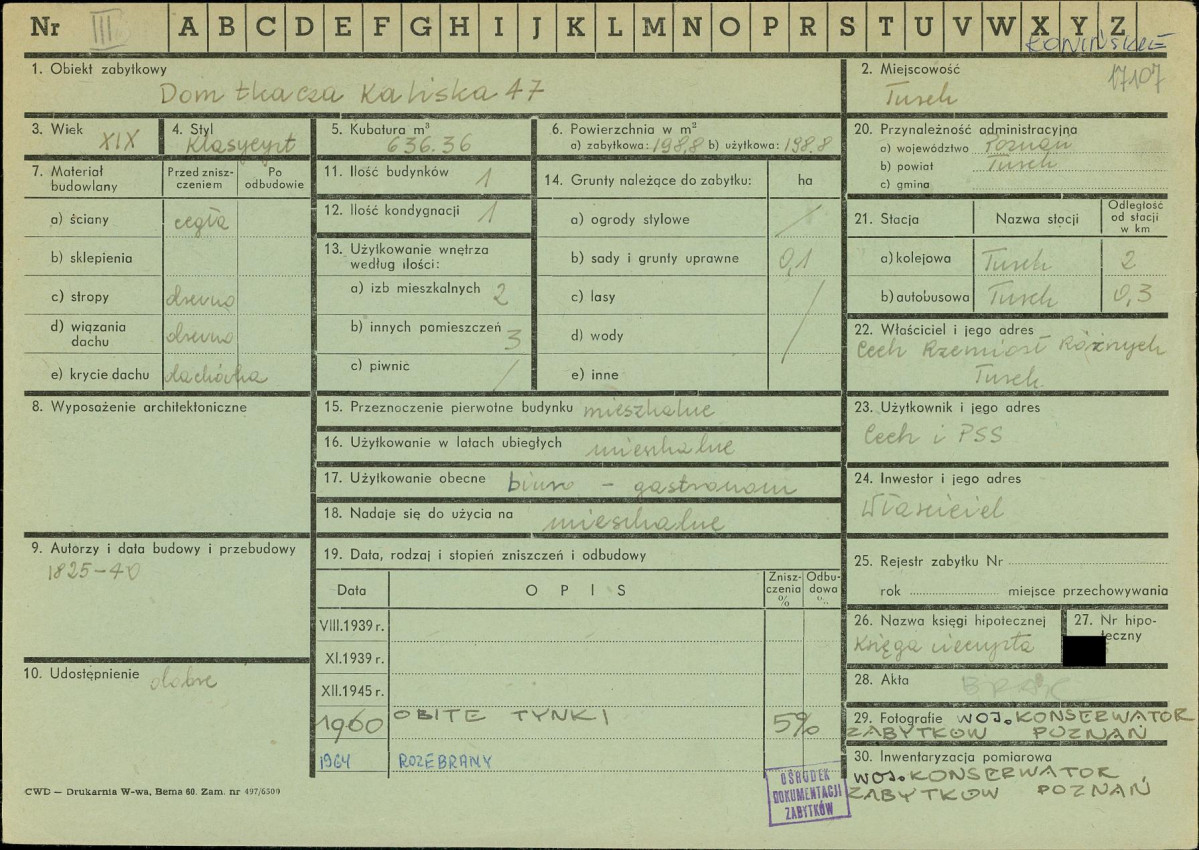 Nr III A B C D E F G H I J K L M N O P R S T U V W X Y Z
KONIŃSKIE
1. Obiekt zabytkowy
Dom tkacza Kaliska 47
2. Miejscowość 17107
Turek
3. Wiek XIX
4. Styl Klasycyzt
5. Kubatura m³ 636.36
6. Powierzchnia w m²
a) zabytkowa: 198,8 b) użytkowa: 198,8
20. Przynależność administracyjna
a) województwo Poznań
b) powiat Turek
c) gmina
7. Materiał budowlany
Przed zniszczeniem
Po odbudowie
a) ściany cegła
b) sklepienia
c) stropy drewno
d) wiązania dachu drewno
e) krycie dachu dachówka
11. Ilość budynków 1
12. Ilość kondygnacji 1
13. Użytkowanie wnętrza
według ilości:
a) izb mieszkalnych 2
b) innych pomieszczeń 3
c) piwnić /
14. Grunty należące do zabytku: ha
a) ogrody stylowe /
b) sady i grunty uprawne 0,1
c) lasy
d) wody /
e) inne
21. Stacja Nazwa stacji Odległość od stacji w km
a) kolejowa Turek 2
b) autobusowa Turek 0,3
22. Właściciel i jego adres
Cech Rzemiosł Różnych
Turek
8. Wyposażenie architektoniczne
15. Przeznoczenie pierwotne budynku mieszkalne
16. Użytkowanie w latach ubiegłych mieszkalne
17. Użytkowanie obecne biuro - gastronom
18. Nadaje się do użycia na mieszkalne
23. Użytkownik i jego adres
Cech i PSS
24. Inwestor i jego adres
Właściciel
9. Autorzy i data budowy i przebudowy
1825-40
19. Data, rodzaj i stopień zniszczeń i odbudowy
Data OPIS Zniszczenia % Odbudowa %
VIII.1939 r.
XI.1939 r.
XII.1945 r.
1960 OBITE TYNKI 5%
1964 ROZEBRANY
25. Rejestr zabytku Nr
rok miejsce przechowywania
26. Nazwa księgi hipotecznej
Księga wieczysta
27. Nr hipoteczny
10. Udostępnienie dobre
28. Akta BRAK
29. Fotografie WOJ. KONSERWATOR
ZABYTKÓW POZNAŃ
30. Inwentaryzacja pomiarowa
WOJ. KONSERWATOR
ZABYTKÓW POZNAŃ
OŚRODEK
DOKUMENTACJI
ZABYTKÓW
CWD — Drukarnia W-wa, Bema 60. Zam. nr 497/6500